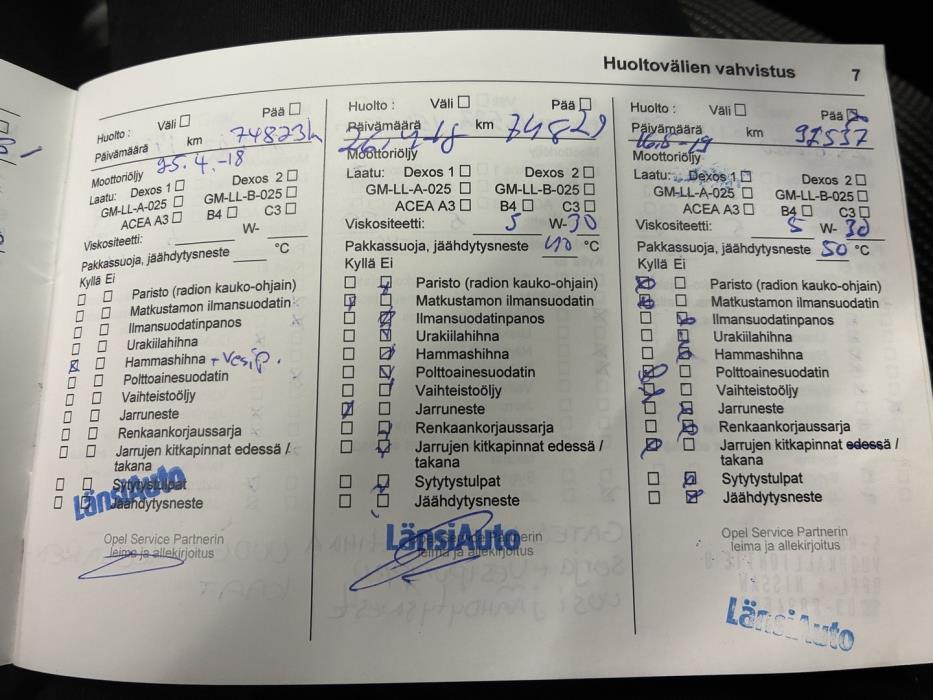 Huoltovälien vahvistus 7
Huolto : Väli ☐ Pää ☐
Päivämäärä km 74823
25.4.-18
Moottoriöljy
Laatu: Dexos 1 ☐ Dexos 2 ☐
GM-LL-A-025 ☐ GM-LL-B-025 ☐
ACEA A3 ☐ B4 ☐ C3 ☐
Viskositeetti: W-
Pakkassuoja, jäähdytysneste °C
Kyllä Ei
☐ ☐ Paristo (radion kauko-ohjain)
☐ ☐ Matkustamon ilmansuodatin
☐ ☐ Ilmansuodatinpanos
☐ ☐ Urakiilahihna
☒ ☐ Hammashihna + Vesip.
☐ ☐ Polttoainesuodatin
☐ ☐ Vaihteistoöljy
☐ ☐ Jarruneste
☐ ☐ Renkaankorjaussarja
☐ ☐ Jarrujen kitkapinnat edessä /
takana
☐ ☐ Sytytystulpat
☐ ☐ Jäähdytysneste
LänsiAuto
Opel Service Partnerin
leima ja allekirjoitus
Huolto : Väli ☐ Pää ☐
Päivämäärä km 74829
26.4-18
Moottoriöljy
Laatu: Dexos 1 ☐ Dexos 2 ☐
GM-LL-A-025 ☐ GM-LL-B-025 ☐
ACEA A3 ☐ B4 ☐ C3 ☐
Viskositeetti: 5 W-30
Pakkassuoja, jäähdytysneste 40 °C
Kyllä Ei
☐ ☒ Paristo (radion kauko-ohjain)
☒ ☐ Matkustamon ilmansuodatin
☐ ☒ Ilmansuodatinpanos
☐ ☒ Urakiilahihna
☐ ☒ Hammashihna
☐ ☒ Polttoainesuodatin
☐ ☒ Vaihteistoöljy
☒ ☐ Jarruneste
☐ ☒ Renkaankorjaussarja
☐ ☒ Jarrujen kitkapinnat edessä /
takana
☐ ☒ Sytytystulpat
☐ ☐ Jäähdytysneste
LänsiAuto
Opel Service Partnerin
leima ja allekirjoitus
Huolto : Väli ☐ Pää ☒
Päivämäärä km 92537
16.5-19
Moottoriöljy
Laatu: Dexos 1 ☐ Dexos 2 ☐
GM-LL-A-025 ☐ GM-LL-B-025 ☐
ACEA A3 ☐ B4 ☐ C3 ☐
Viskositeetti: 5 W- 30
Pakkassuoja, jäähdytysneste 50 °C
Kyllä Ei
☒ ☐ Paristo (radion kauko-ohjain)
☒ ☐ Matkustamon ilmansuodatin
☐ ☒ Ilmansuodatinpanos
☐ ☒ Urakiilahihna
☐ ☒ Hammashihna
☒ ☐ Polttoainesuodatin
☒ ☐ Vaihteistoöljy
☐ ☒ Jarruneste
☐ ☒ Renkaankorjaussarja
☒ ☐ Jarrujen kitkapinnat edessä /
takana
☐ ☒ Sytytystulpat
☐ ☒ Jäähdytysneste
Opel Service Partnerin
leima ja allekirjoitus
LänsiAuto